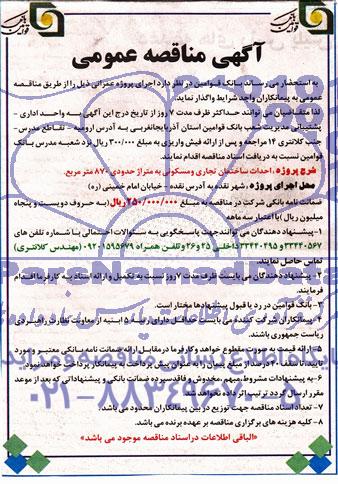 آگهی مناقصه عمومی
به استحضار می رساند بانک قوامین در نظر دارد اجرای پروژه عمرانی ذیل را از طریق مناقصه
عمومی به پیمانکاران واجد شرایط واگذار نماید.
لذا متقاضیان می توانند حداکثر ظرف مدت ۷ روز از تاریخ درج این آگهی به واحد اداری -
پشتیبانی مدیریت شعب بانک قوامین استان آذربایجانغربی به آدرس ارومیه - تقاطع مدرس-
جنب کلانتری ۱۴ مراجعه و پس از ارائه فیش واریزی به مبلغ ۳۰۰/۰۰۰ ریال نزد شعبه مدرس بانک
قوامین نسبت به دریافت اسناد مناقصه اقدام نمایند.
شرح پروژه : احداث ساختمان تجاری و مسکونی به متراژ حدودی ۸۷۰ متر مربع.
محل اجرای پروژه : شهر نقده به آدرس نقده - خیابان امام خمینی (ره)
ضمانت نامه بانکی شرکت در مناقصه به مبلغ ۲۵۰/۰۰۰/۰۰۰ ریال (به حروف دویست و پنجاه
میلیون ریال) با اعتبار سه ماهه
۱- پیشنهاد دهندگان می توانند جهت پاسخگویی به سئوالات احتمالی با شماره تلفن های
۳۳۴۴۰۵۶۷ و ۳۳۴۴۰۴۹۵ داخلی ۲۵ و ۲۶ و تلفن همراه ۰۹۲۰۱۵۹۵۶۷۹ (مهندس کلانتری)
تماس حاصل نمایند.
۲- پیشنهاد دهندگان می بایست ظرف مدت ۷ روز نسبت به تکمیل و ارائه اسناد به کارفرما اقدام
فرمایند.
۳- بانک قوامین در رد یا قبول پیشنهادها مختار است.
۴- پیمانکاران شرکت کننده می بایست حداقل دارای رتبه ۵ ابنیه از معاونت نظارت راهبردی
ریاست جمهوری باشند.
۵- ارائه قیمت به صورت مقطوع خواهد و کارفرما در مقابل ارائه ضمانت نامه بانکی معتبر و مورد
تایید تا سقف ۲۰ درصد از مبلغ پیمان را به عنوان پیش پرداخت به پیمانکار پرداخت خواهد نمود.
۶- به پیشنهادات مشروط، مبهم، مخدوش و فاقد سپرده ضمانت بانکی و پیشنهاداتی که بعد از موعد
مقرر ارسال گردد ترتیب اثر داده نخواهد شد.
۷- تعداد اسناد مناقصه جهت توزیع در بین پیمانکاران محدود می باشد.
۸- کلیه هزینه های برگزاری مناقصه بر عهده برنده می باشد.
«الباقی اطلاعات در اسناد مناقصه موجود می باشد»
۰۲۱-۸۸۳۴۹۶۷۰-۵